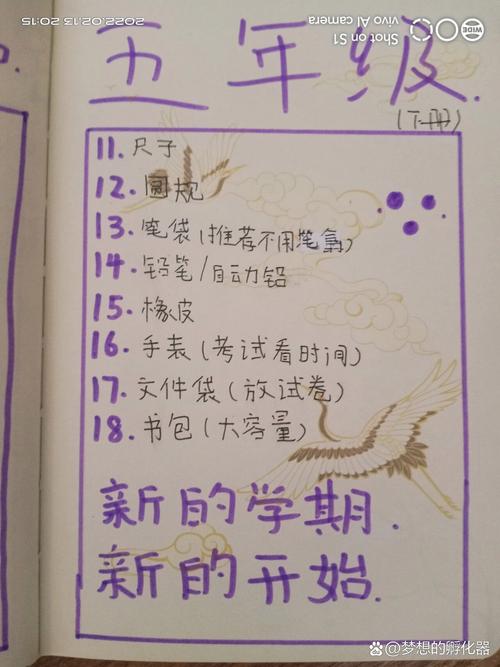 2022.02.13 20:15
Shot on S1
vivo AI camera
WIDE
五年级.
(下册)
11. 尺子
12. 圆规
13. 笔袋(推荐不用笔盒)
14. 铅笔/自动铅
15. 橡皮
16. 手表(考试看时间)
17. 文件袋(放试卷)
18. 书包(大容量)
新的学期.
新的开始.
@梦想的孵化器